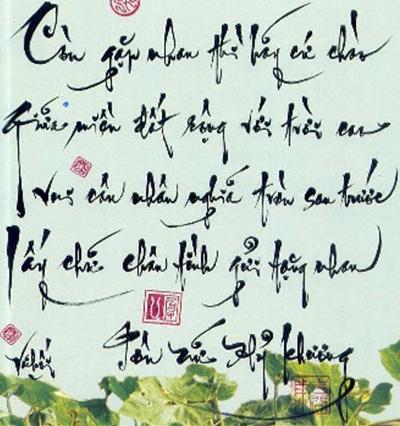 Còn gặp nhau thì hãy cứ chào
Giữa miền đất rộng với trời cao
Vui câu nhân nghĩa tròn sau trước
Lấy chữ chân tình gửi tặng nhau
Vũ Hối Tôn Nữ Hỷ Khương